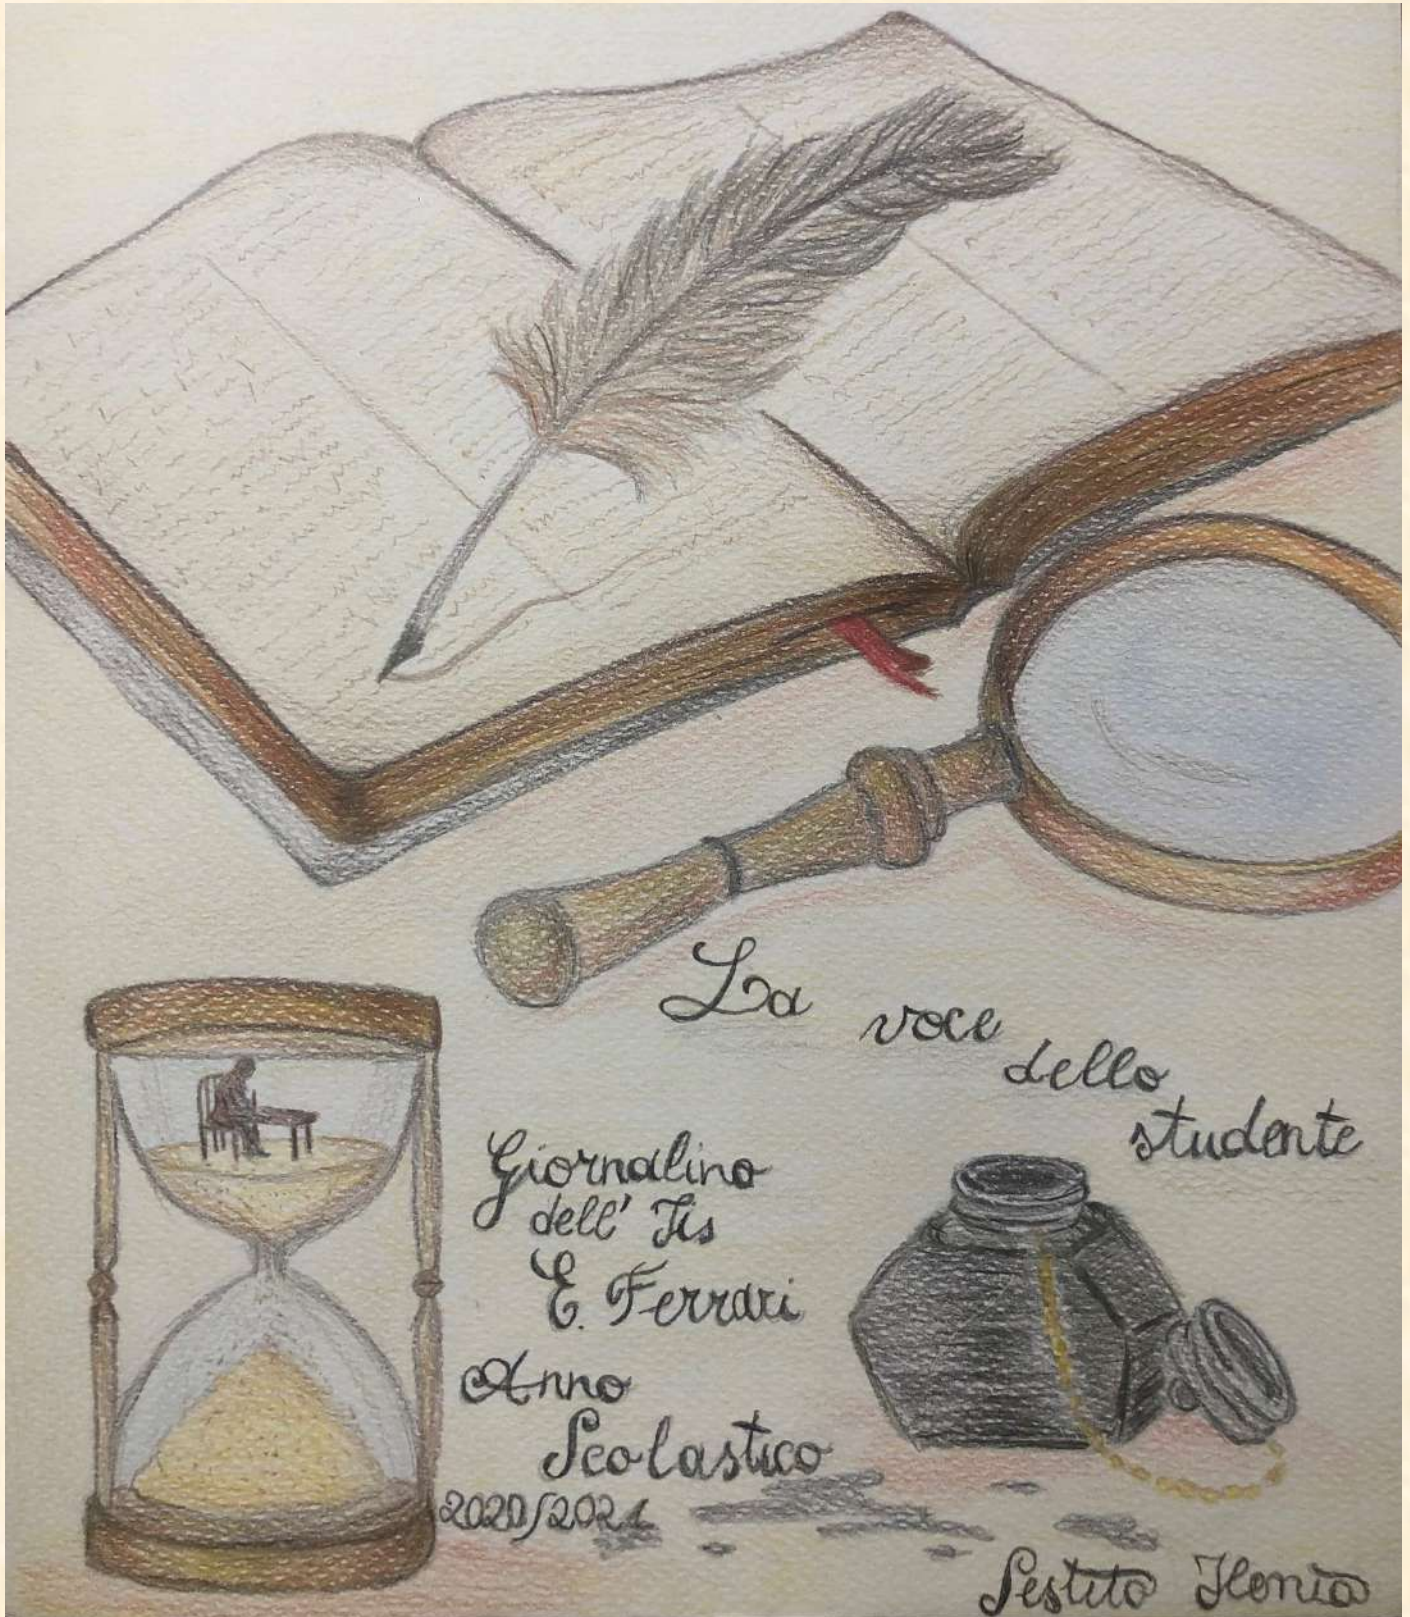 La voce dello studente
Giornalino
dell' Iis
E. Ferrari
Anno
Scolastico
2020/2021
Sestito Ilenia